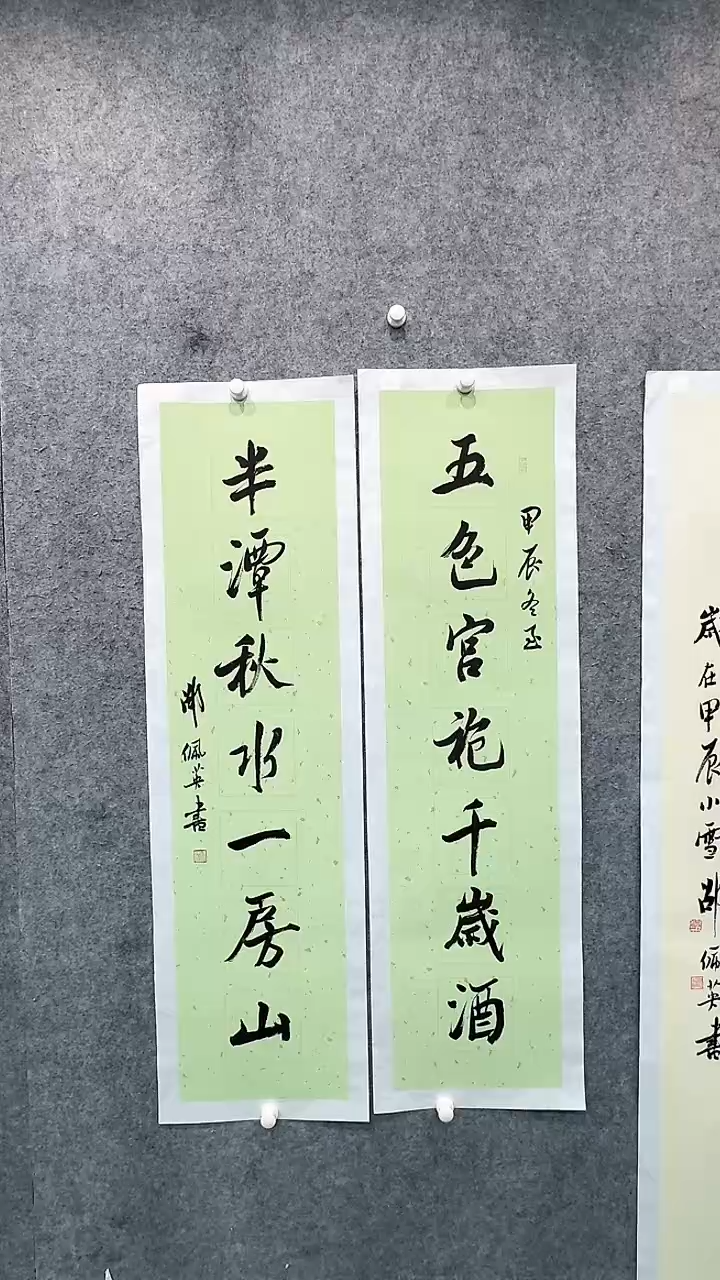 五色宫袍千歳酒
甲辰冬至
半潭秋水一房山
佩英书
歳在甲辰小雪
佩英書